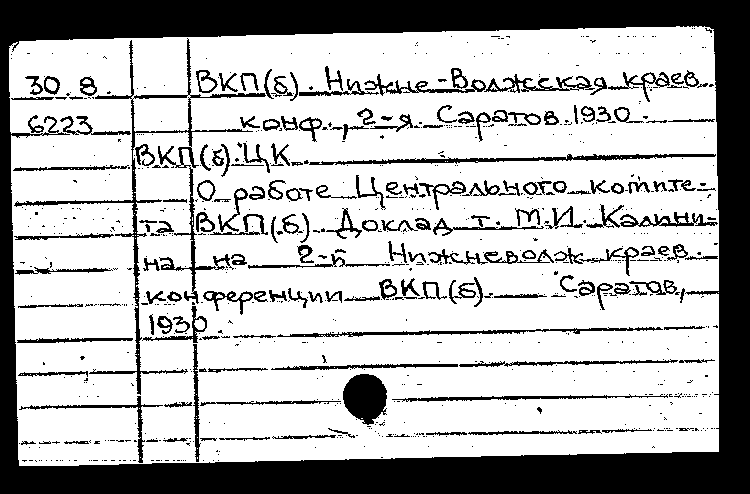 30.8. ВКП(б). Нижне-Волжская краев.
6223 конф., 2-я. Саратов. 1930.
ВКП(б). ЦК.
О работе Центрального комите-
та ВКП(б). Доклад т. М.И. Калини-
на на 2-й Нижневолж. краев.
конференции ВКП(б). Саратов,
1930.